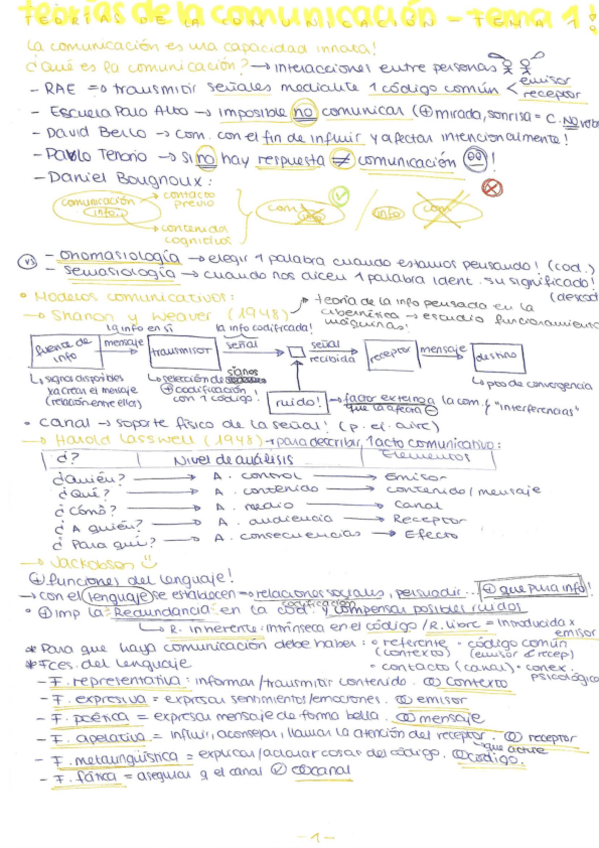 teorías de la comunicación – tema 1!
TEORÍAS DE LA COMUNICACIÓN - TEMA 1!
La comunicación es una capacidad innata!
¿Qué es la comunicación? → interacciones entre personas
emisor
receptor
- RAE => transmitir señales mediante 1 código común <
- Escuela Palo Alto → imposible no comunicar (⊕ mirada, sonrisa = C. NO verbal
- David Berlo → com. con el fin de influir y afectar intencionalmente!
- Pablo Tenorio → si no hay respuesta ≠ comunicación!
- Daniel Bougnoux:
comunicación
info
→ contacto previo
→ contenidos cognitivos
com
info
/ info
com
vs
- onomasiología → elegir 1 palabra cuando estamos pensando! (cod.)
- semasiología → cuando nos dicen 1 palabra ident. su significado!
(descod
• Modelos comunicativos:
→ Shanon y Weaver (1948)
→ teoría de la info pensada en la
cibernética → estudio funcionamiento
máquinas!
la info en sí
la info codificada!
fuente de info
mensaje
transmisor
señal
señal recibida
receptor
mensaje
destino
↳ signos disponibles
xa crear el mensaje
(relación entre ellos)
↳ selección de signos
⊕ codificación
con 1 código!
ruido!
→ factor externo a la com. y "interferencias"
que la afecta ⊖
↳ pto de convergencia
• canal → soporte físico de la señal! (p. ej. aire)
→ Harold Lasswell (1948) → para describir 1 acto comunicativo:
¿? | Nivel de análisis | Elementos
¿Quién? → A. control → Emisor
¿Qué? → A. contenido → contenido / mensaje
¿Cómo? → A. medio → Canal
¿A quién? → A. audiencia → Receptor
¿Para qué? → A. consecuencias → Efecto
→ Jackobson
⊕ funciones del lenguaje!
→ con el lenguaje se establecen → relaciones sociales, persuadir... ⊕ que pura info!
• ⊕ imp la Redundancia en la codificación y compensar posibles ruidos
↳ R. inherente: intrínseca en el código / R. libre = introducida x
emisor
* Para que haya comunicación debe haber: • referente (contexto) • código común (emisor & recep)
• contacto (canal) • conex. psicológica
* Fces. del lenguaje
- F. representativa: informar/transmitir contenido. contexto
- F. expresiva = expresar sentimientos/emociones. emisor
- F. poética = expresar mensaje de forma bella. mensaje
- F. apelativa = influir, aconsejar, llamar la atención del receptor. receptor
que actúe
- F. metalingüística = explicar/aclarar cosas del código. código.
- F. fática = asegurar q el canal canal
- 1 -